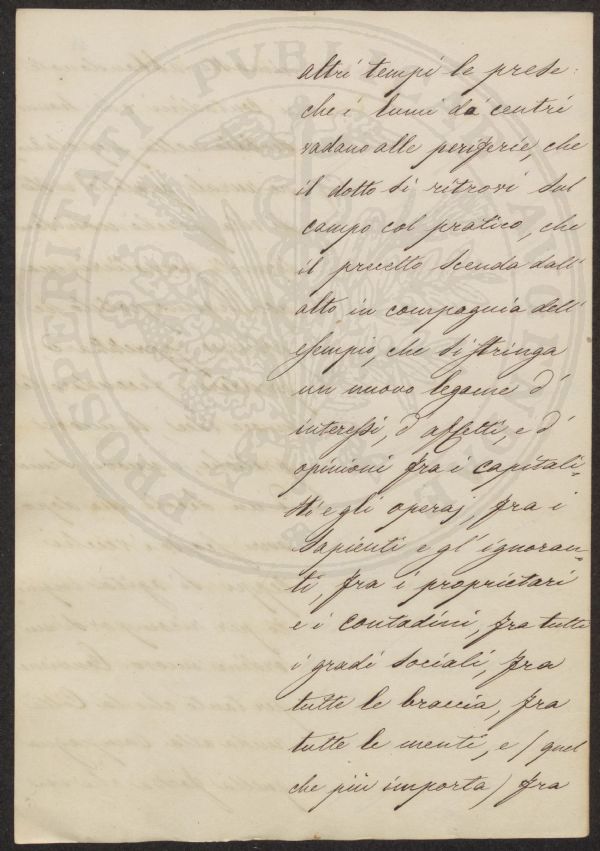 altri tempi le prese:
che i lumi da' centri
vadano alle periferie, che
il dotto si ritrovi sul
campo col pratico, che
il precetto scenda dall'
alto in compagnia dell'
esempio, che si stringa
un nuovo legame d'
interessi, d'affetti, e d'
opinioni fra i capitali-
sti e gli operaj, fra i
sapienti e gl'ignoran-
ti, fra i proprietari
e i contadini, fra tutti
i gradi sociali, fra
tutte le braccia, fra
tutte le menti, e (quel
che più importa) fra
PROSPERITATI PUBLICAE